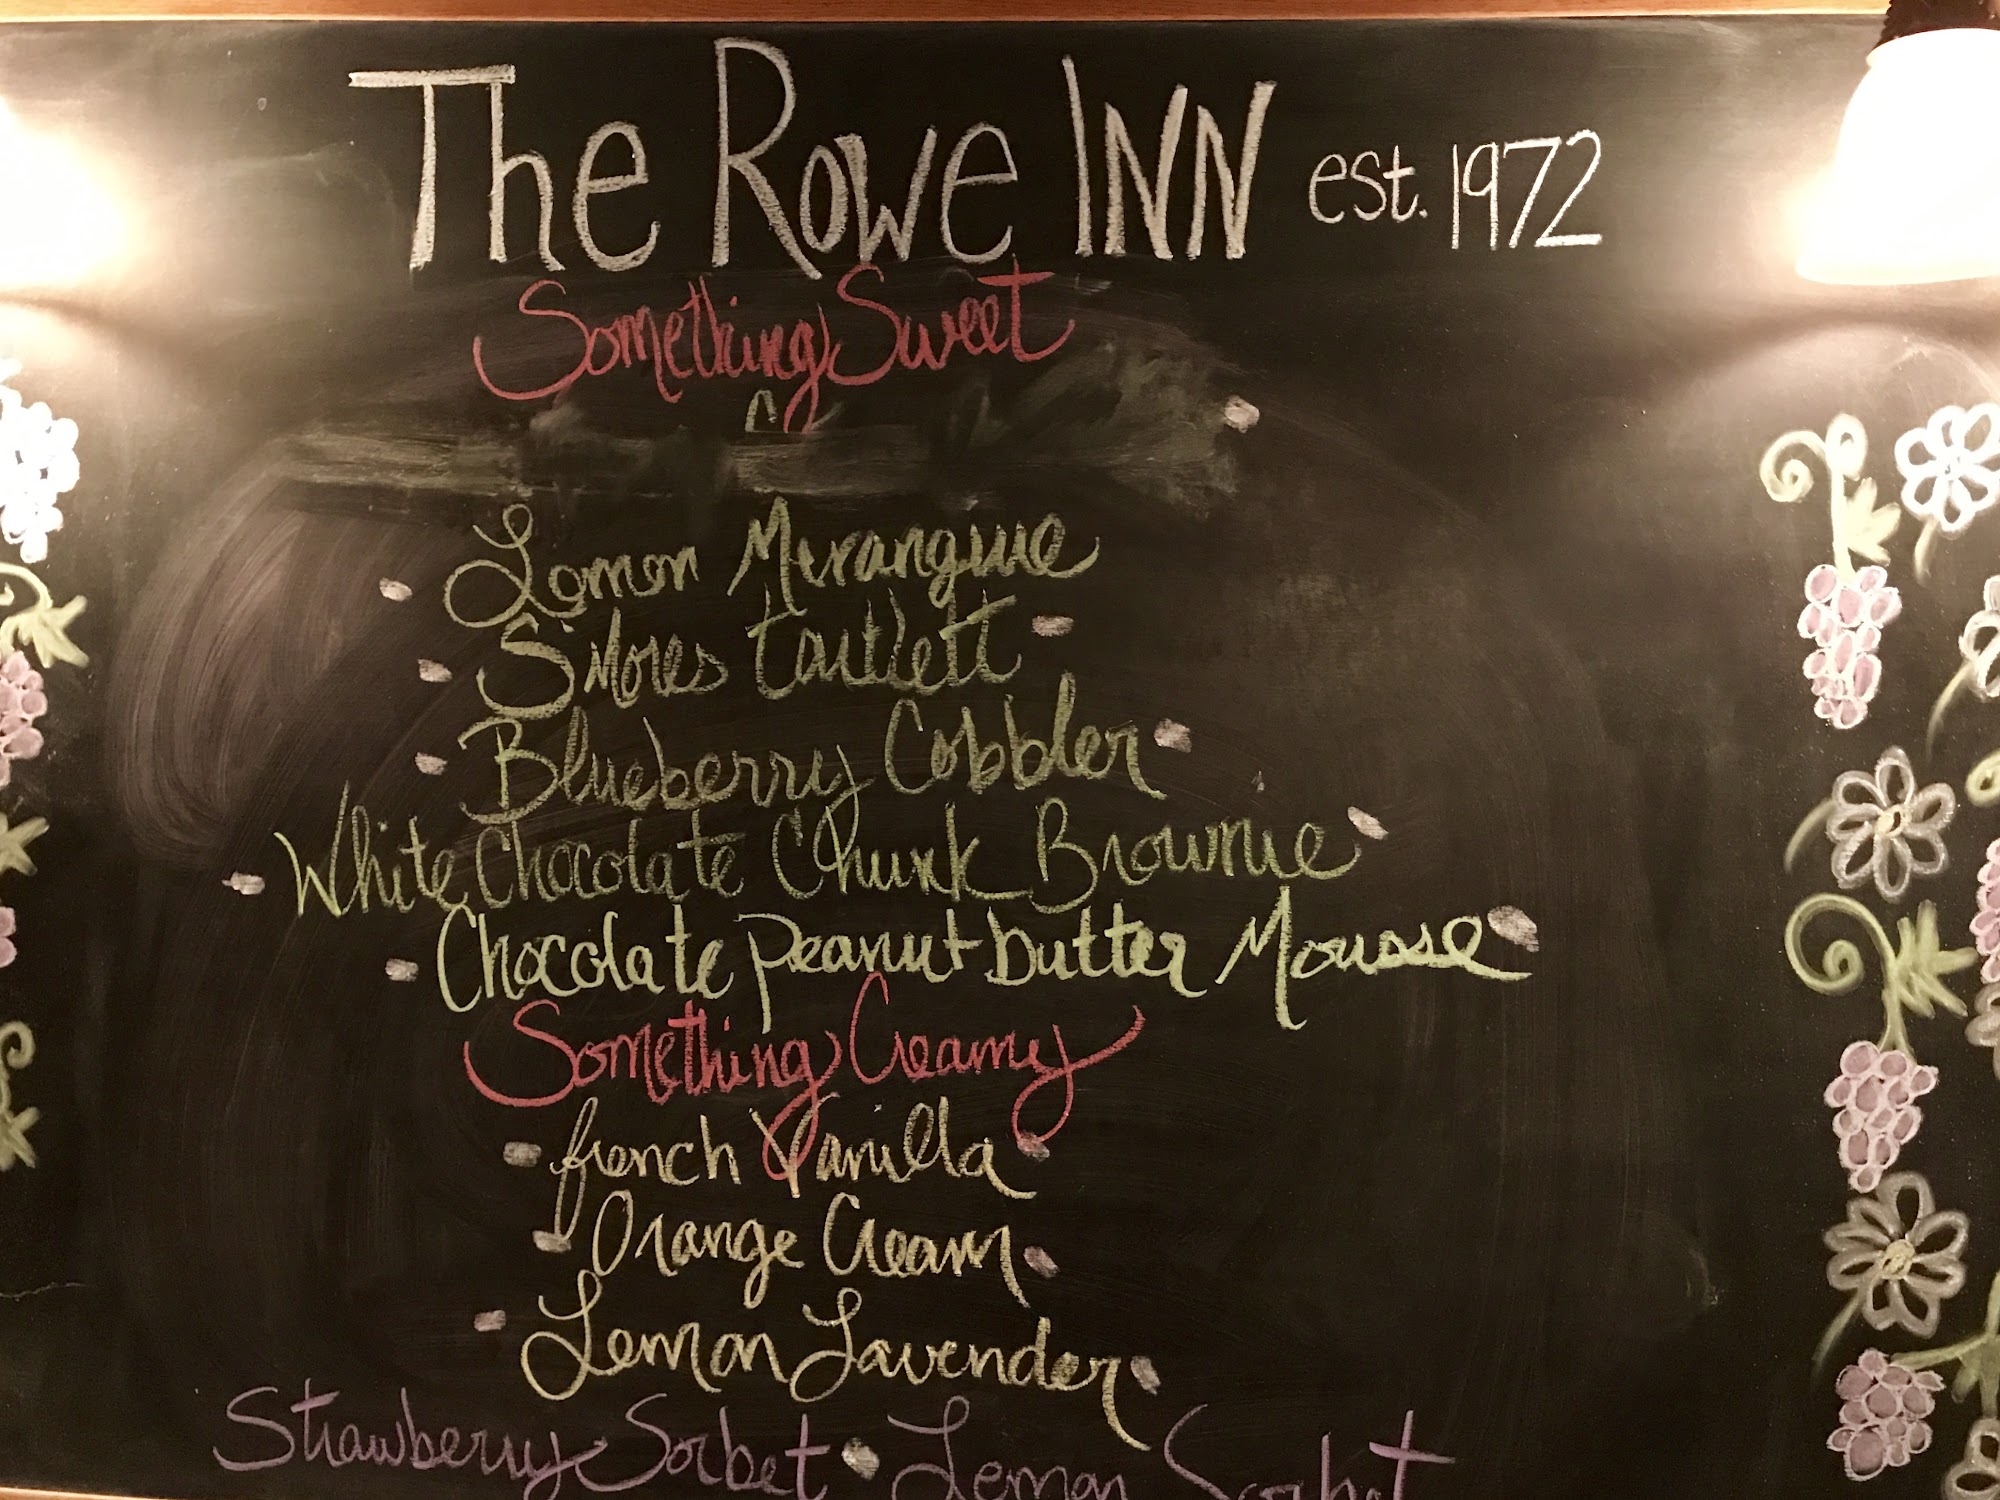 The Rowe INN est. 1972
Something Sweet
Lemon Merangue
S'Mores tartlett
Blueberry Cobbler
White Chocolate Chunk Brownie
Chocolate Peanut butter Mousse
Something Creamy
french Vanilla
Orange Cream
Lemon Lavender
Strawberry Sorbet • Lemon Sorbet